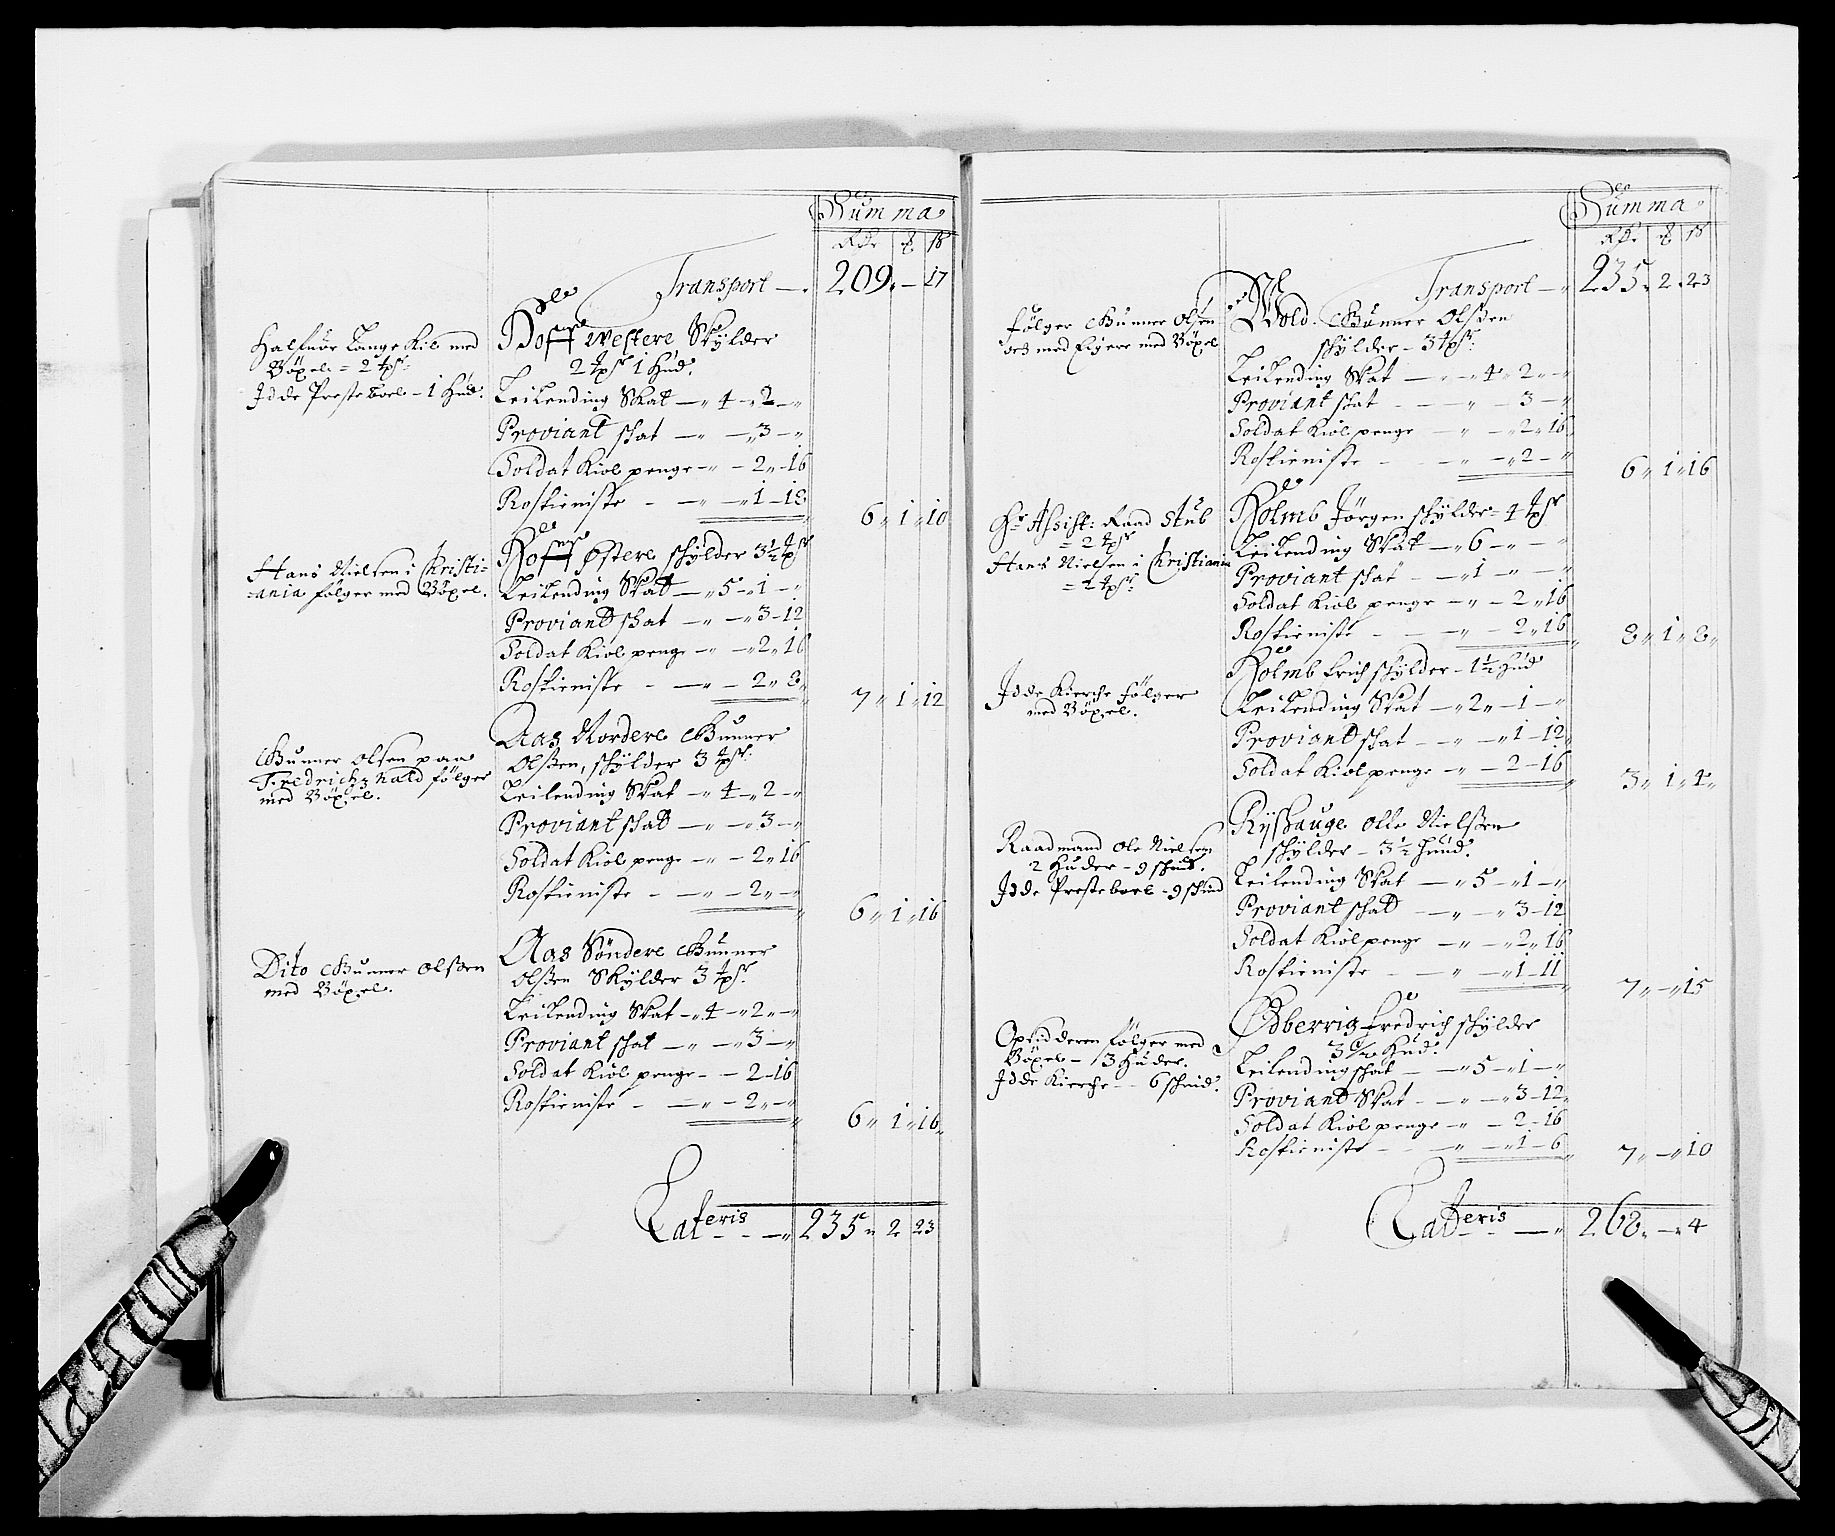 Summa
Rdr 𝔪 ß
Transport — 209 „ — 17
Halfuor Lange Kil med
Böxel = 2 tpsr:
Idde Præsteboel – 1 Hud.
Hoff westere Skylder
2 tpsr 1 Hud.
Leilending Skat — „ 4 – 2 – „
Proviant skat — „ — „ 3 – „
Soldat Kiol penge – „ – 2 „ 16
Rostieniste - — „ — „ 1 – 18
6 „ 1 „ 10
Hans Nielsen i Christi-
ania følger med Böxel.
Hoff Østere skylder 3½ tpsr
Leilending Skatt — „ 5 „ 1 – „
Proviant skat — „ — „ 3 – 12
Soldat Kiol penge – „ — „ 2 „ 16
Rostieniste - — „ – 2 „ 8
7 „ 1 „ 12
Gunner Olsen paa
Fredrichshald følger
med Böxel.
Aas Nordere Gunner
Olssen, skylder 3 tpsr.
Leilending Skat — „ 4 – „ 2 – „
Proviant skat — „ — „ 3 – „
Soldat Kiol penge – „ – 2 „ 16
Rostieniste - — „ – 2 „ – „
6 „ 1 „ 16
Dito Gunner Olssen
med Böxel.
Aas Söndere Gunner
Olssen Skylder 3 tpsr.
Leilending Skat – „ 4 – „ 2 „ – „
Proviant skat — „ — „ 3 – „
Soldat Kiol penge - – 2 – 16
Rostieniste - — „ – 2 „ – „
6 „ 1 „ 16 „
Lateris — „ 235 „ 2 23
Summa
Rdr 𝔪 ß
Transport — „ 235 „ 2 „ 23
følger Gunner Olsen
med Böxel
Wold Gunner Olssen
skylder – 3 tpsr:
Leilending Skat — „ – 4 „ 2 „ – „
Proviant skat - - — „ – 3 – „
Soldat Kiol penge – „ – „ 2 „ 16
Rostieniste - — „ – „ 2 – „
6 „ 1 „ 16
Hr Assist: Raad Stub
= 2 tpsr
Hans Nielsen i Christiania
= 2 tpsr:
Holmb Jörgen skylder – 4 tpsr
Leilending Skat — „ 6 – „ – „
Proviant skat - — „ 1 „ – „
Soldat Kiol penge – „ – 2 „ 16
Rostieniste - — „ – 2 „ 16
8 „ 1 „ 8 „
Idde Kierche følger
med Böxel.
Holmb Erich skylder – 1½ Hud
Leilending Skat — „ 2 „ – 1 – „
Proviant skat - — „ – „ 1 – 12 „
Soldat Kiol penge – „ – 2 – 16
3 „ 1 „ 4 „
Raadmand Ole Nielsen
2 Huder – 9 skind.
Idde Præsteboel – 9 skind
Ryshauge Olle Nielssen
skylder – 3½ Huud.
Leilending Skat — „ 5 – „ 1 – „
Proviant skat — „ — „ 3 – 12
Soldat Kiol penge – „ – „ 2 „ 16
Rostieniste - — „ — „ 1 – 11
7 „ — „ 15
Opsidderen følger med
Böxel – 3 Huder.
Idde Kierche – 6 skind.
Odberrig Fredrich skylder
Hud.
Leilending skat - — „ 5 – „ 1 – „
Proviant Skat - — „ — „ 3 – 12 „
Soldat Kiol penge – „ – 2 – 16
Rostieniste - — „ — „ 1 – 6
7 „ — „ 10
Lateris — „ 268 „ — „ 4